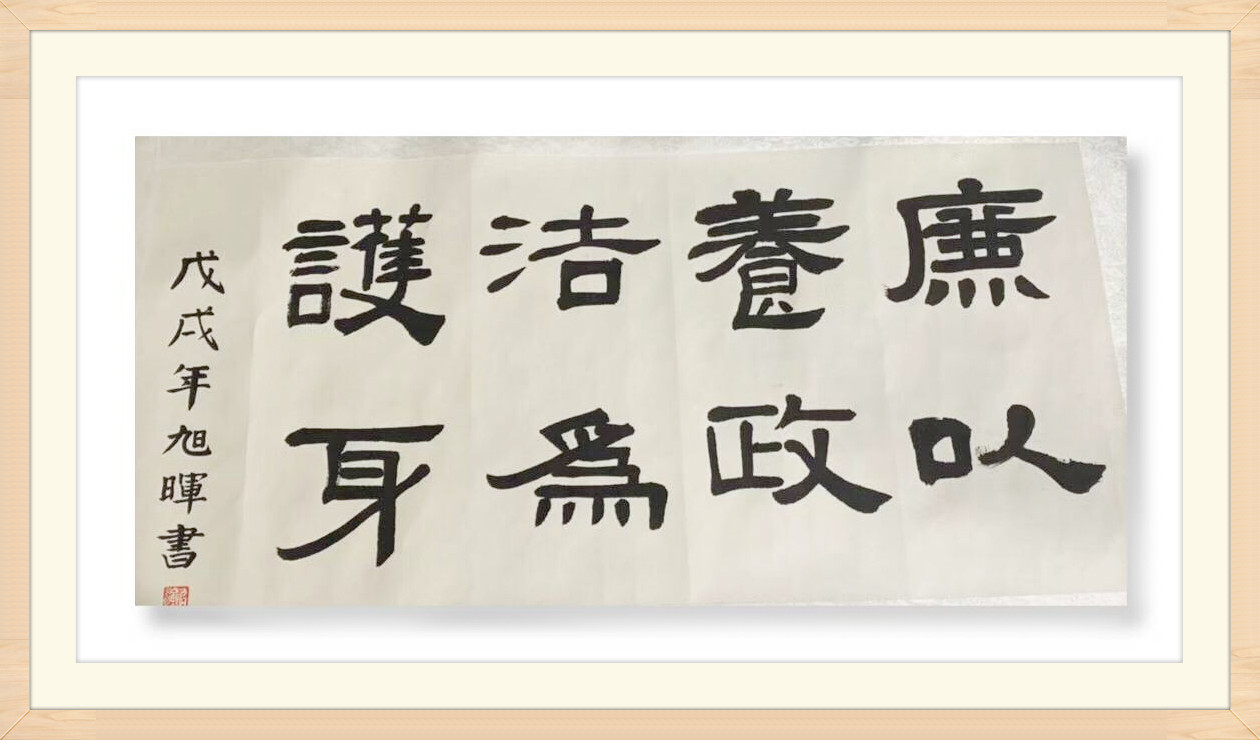 廉以
養政
洁爲
護身
戊戌年旭暉書